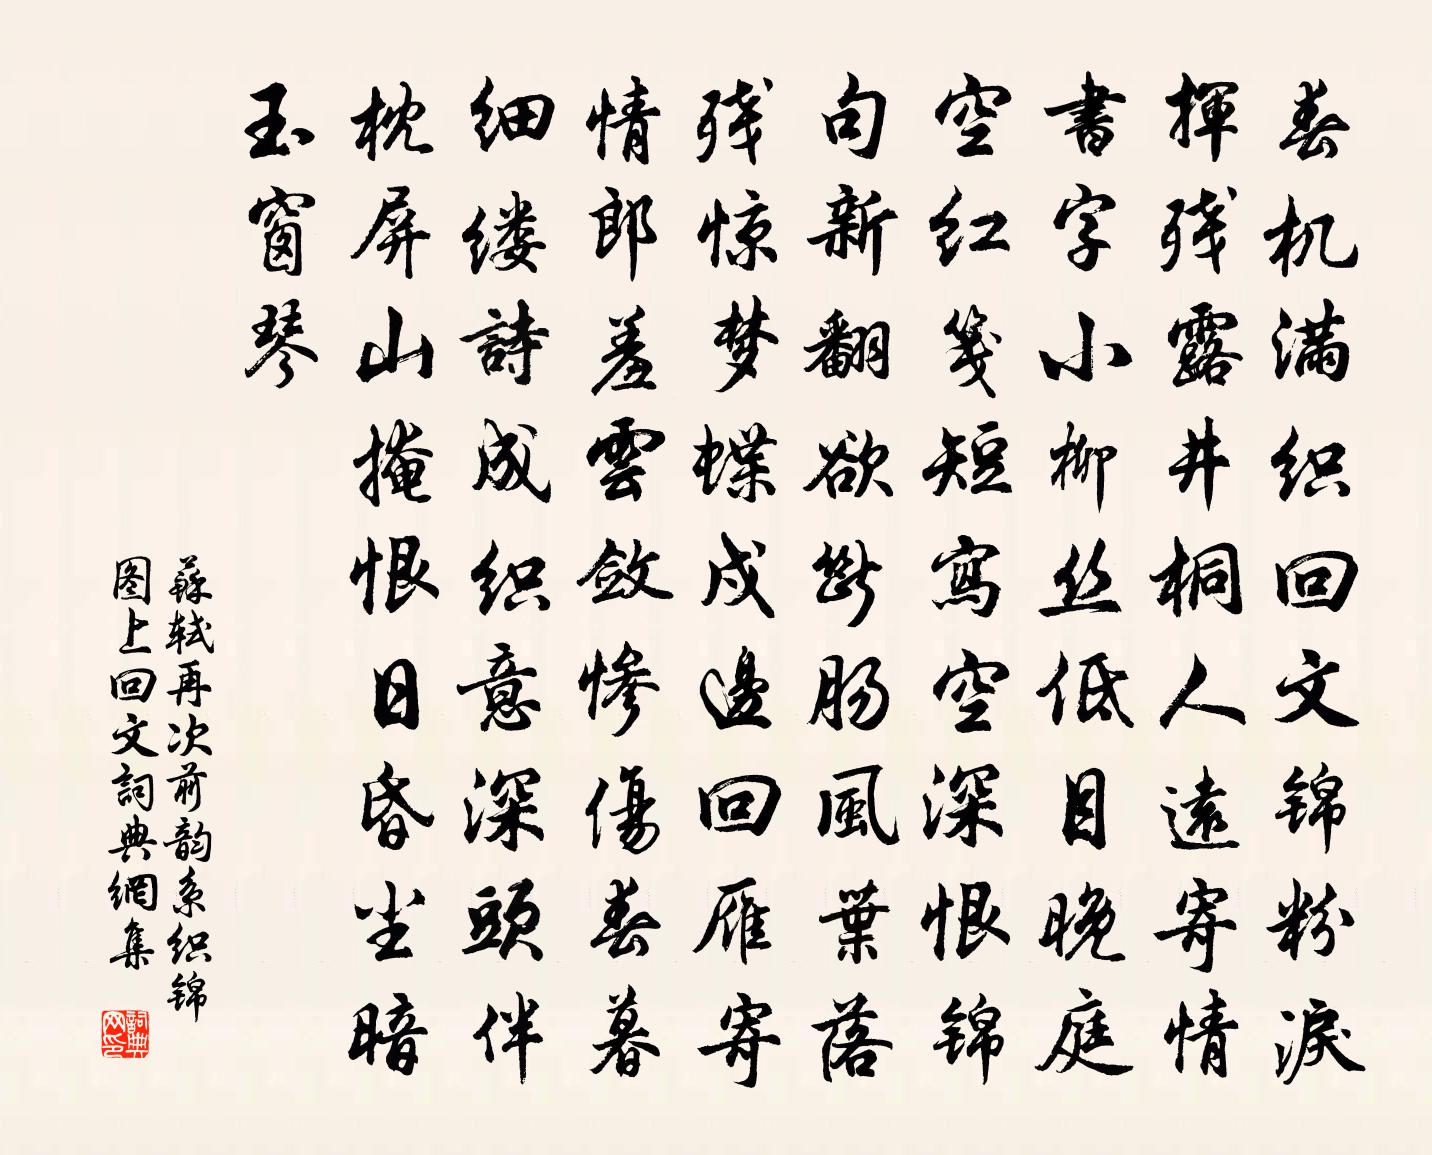 春机满织回文锦粉淚
揮残露井桐人遠寄情
書字小柳丝低目晚庭
空红笺短寫空深恨锦
句新翻欲断肠風葉落
残惊梦蝶戍邊回雁寄
情郎羞雲斂惨傷春暮
细缕詩成织意深頭伴
枕屏山掩恨日昏坐暗
玉窗琴
蘇轼再次前韵系织锦
图上回文詞典網集
詞典网印